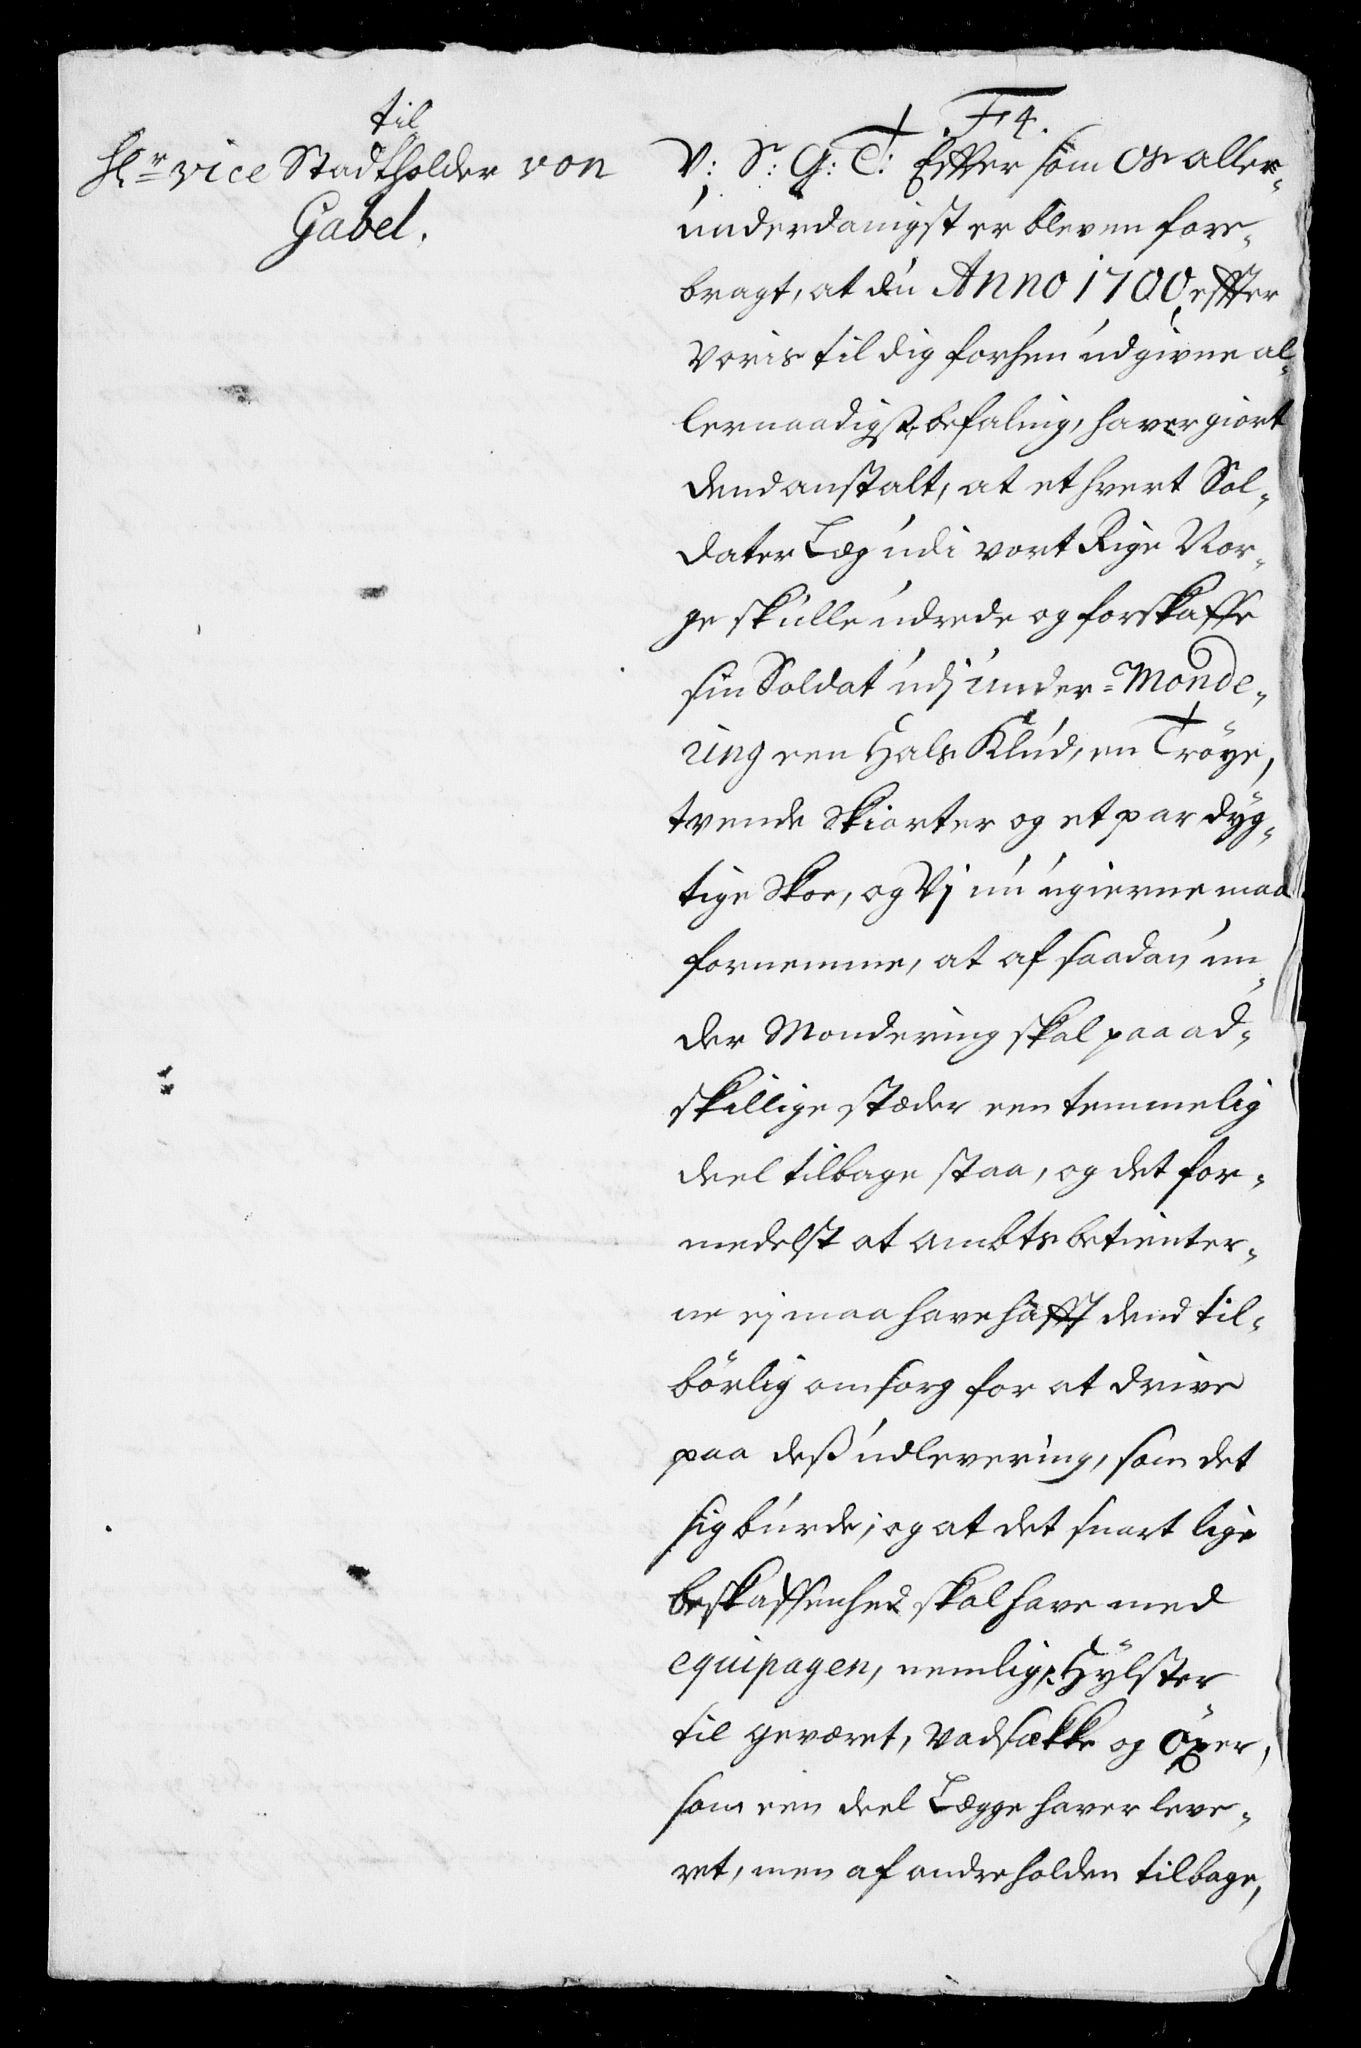 til
Hr. vice Stadtholder von
Gabel.
F 4.
V: S: G: T: Efter som Os aller-
underdanigst er bleven fore-
bragt, at du Anno 1700, effter
Voris til dig forhen udgivne al-
lernaadigste befaling, haver giort
dend anstalt, at et hvert Sol-
dater Læg udi vort Rige Nor-
ge skulle udrede og forskaffe
sin Soldat udj under-Monde-
ring een Hals Klud, en Tröye,
tvende Skiorter og et par dyg-
tige Skoe, og Vj nu ugierne maa
fornemme, at af saadan un-
der Mondering skal paa ad-
skillige stæder een temmelig
deel tilbage staa, og det for-
medelst at ambtsbetienter-
ne ej maa have hafft dend til-
börlig omsorg for at drive
paa deß udlevering, som det
sig burde; og at det snart lige
beskaffenhed skal have med
equipagen, nemlig, Hylster
til geværet, Vadsække og öxer,
som een deel Lægge haver leve-
ret, men af andre holden tilbage,